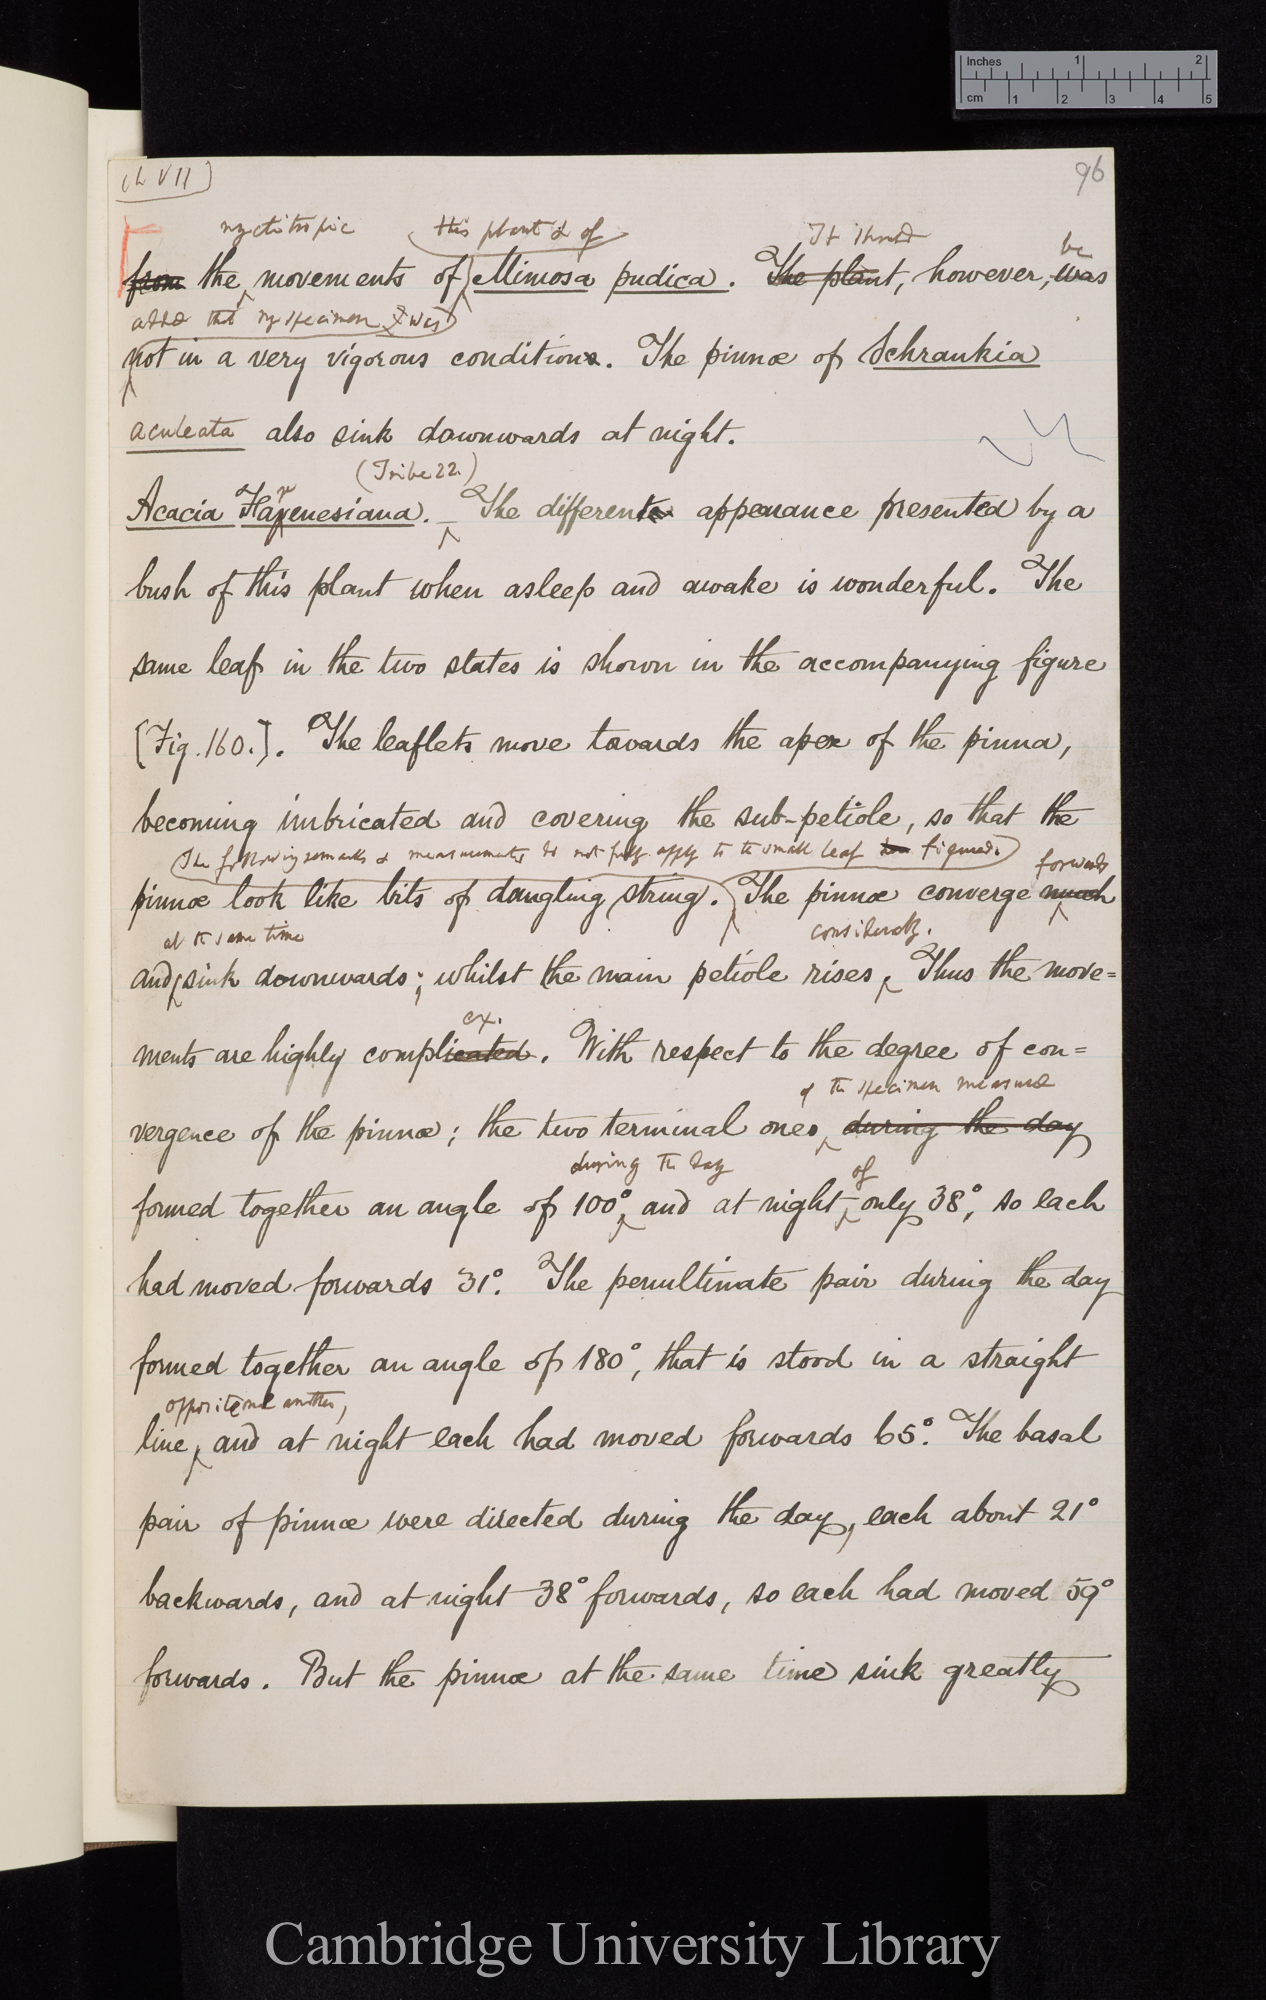 Inches 1 2
cm 1 2 3 4 5
Ch VII
96
nyctitropic this plant & of It should be
from the movements of Mimosa pudica. The plant, however, was
added that my specimen was
not in a very vigorous condition. The pinnæ of Schrankia
aculeata also sink downwards at night.
(Tribe 22.)
r
Acacia Farenesiana. — The different appearance presented by a
bush of this plant when asleep and awake is wonderful. The
same leaf in the two states is shown in the accompanying figure
[Fig. 160.]. The leaflets move towards the apex of the pinna,
becoming imbricated and covering the sub-petiole, so that the
The following remarks & measurements do not fully apply to the small leaf figured. forwards
pinnæ look like bits of dangling string. The pinnæ converge much
at the same time considerably.
and sink downwards; whilst the main petiole rises. Thus the move=
ex.
ments are highly complicated. With respect to the degree of con=
of the specimen measured
vergence of the pinnæ; the two terminal ones during the day
during the day of
formed together an angle of 100°, and at night only 38°, so each
had moved forwards 31°. The penultimate pair during the day
formed together an angle of 180°, that is stood in a straight
opposite one another,
line, and at night each had moved forwards 65°. The basal
pair of pinnæ were directed during the day, each about 21°
backwards, and at night 38° forwards, so each had moved 59°
forwards. But the pinnæ at the same time sink greatly
Cambridge University Library